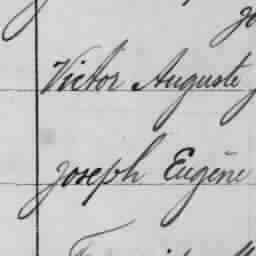 Victor Auguste
Joseph Eugène